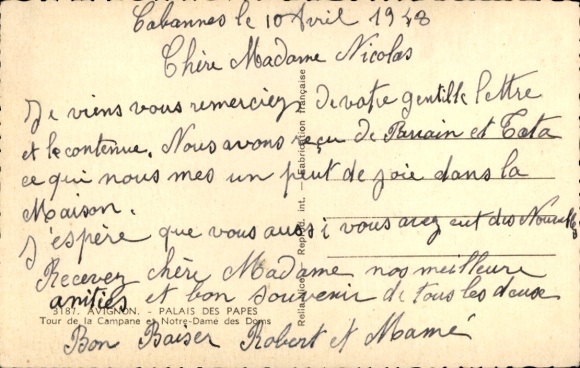 Cabannes le 10 Avril 1948
Chère Madame Nicolas
Je viens vous remerciez de votre gentille lettre
et le contenue. Nous avons reçu de Parrain et Tata
ce qui nous mes un peut de joie dans la
Maison.
J'espère que vous aussi vous avez eut des
Recevez chère Madame nos meilleure
amitiés et bon souvenir de tous les deux
3187. AVIGNON. - PALAIS DES PAPES
Tour de la Campane et Notre-Dame des Doms
Bon Baiser Robert et Mamé
Reprod. int. — Fabrication française